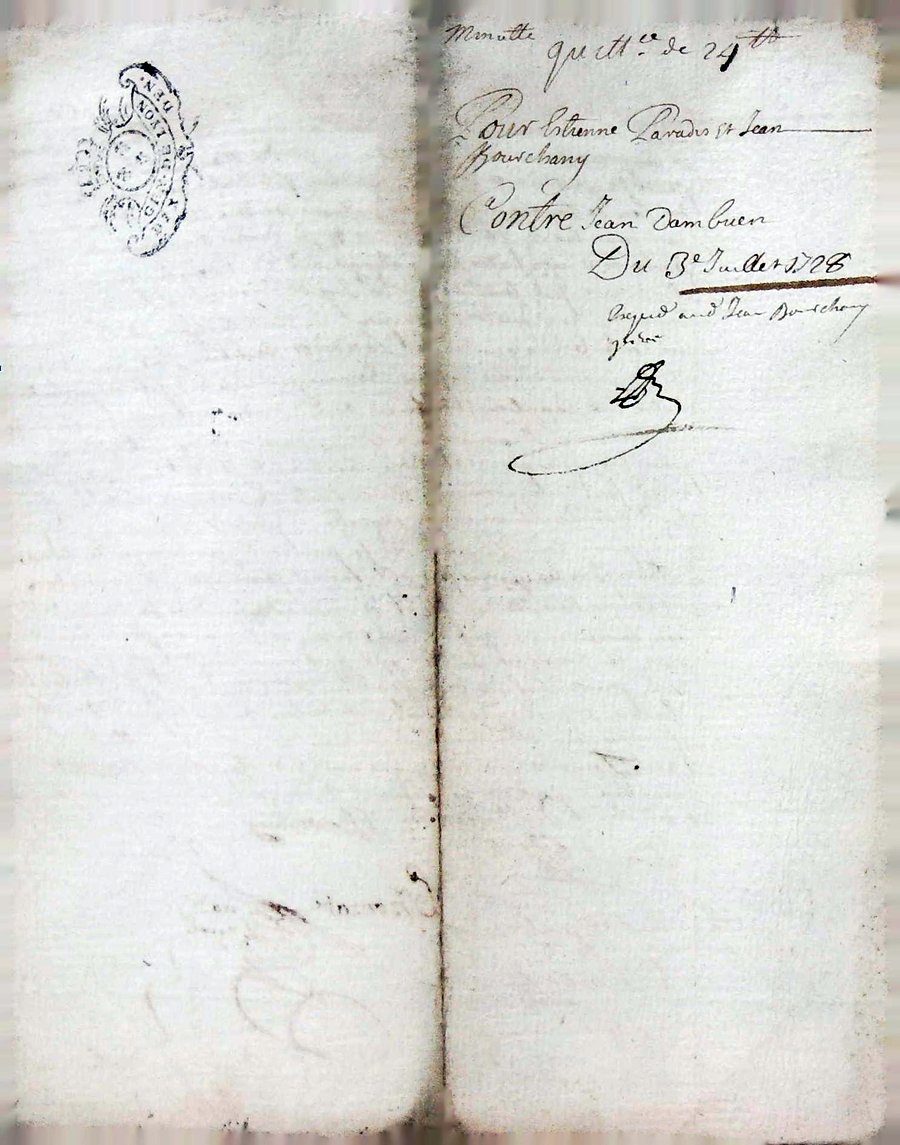 Minutte
quitt.ce de 24 tt
Pour Estienne Paradis et Jean
Bourchany
Contre Jean Dambuen
Du 3e Juillet 1728
Jean Bourchany
LYON
DEN.